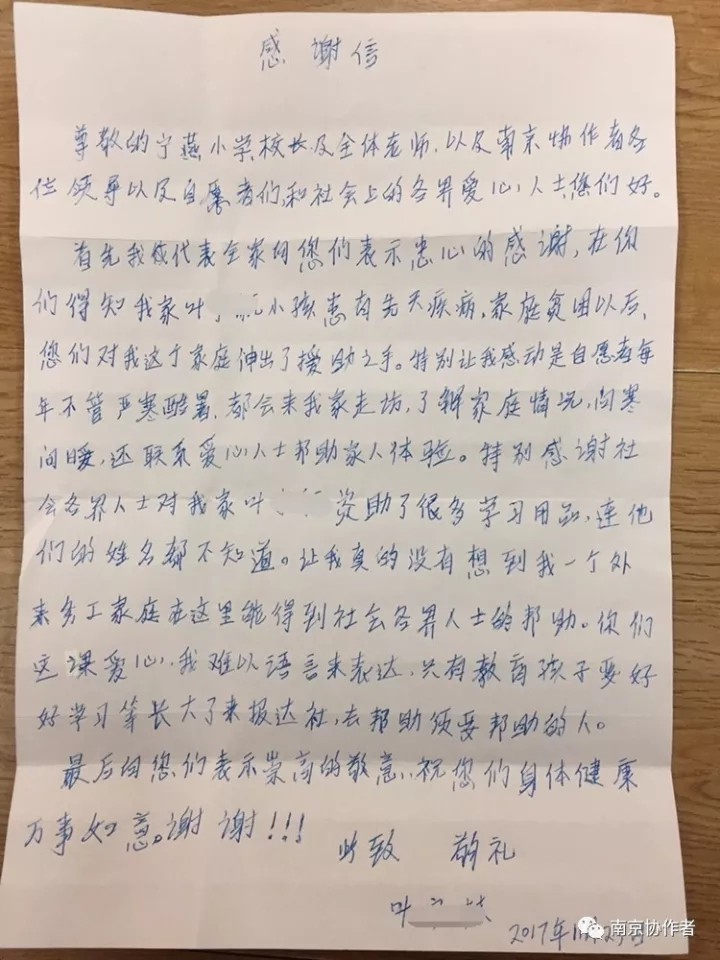 感谢信
尊敬的宁燕小学校长及全体老师，以及南京协作者各
位领导以及自愿者们，和社会上的各界爱心人士您们好。
首先我代表全家向您们表示忠心的感谢，在你
们得知我家叶小孩患有先天疾病，家庭贫困以后，
您们对我这个家庭伸出了援助之手。特别让我感动是自愿者每
年不管严寒酷暑，都会来我家走坊，了解家庭情况，问寒
问暖，还联系爱心人士邦助家人体验。特别感谢社
会各界人士对我家叶 资助了很多学习用品，连他
们的姓名都不知道。让我真的没有想到我一个外
来务工家庭在这里能得到社会各界人士的邦助。你们
这课爱心，我难以语言来表达，只有教育孩子要好
好学习等长大了来报达社，去帮助须要帮助的人。
最后向您们表示崇高的敬意，祝您们身体健康
万事如意。谢谢！！！
此致 敬礼
叶
2017年11月
南京协作者